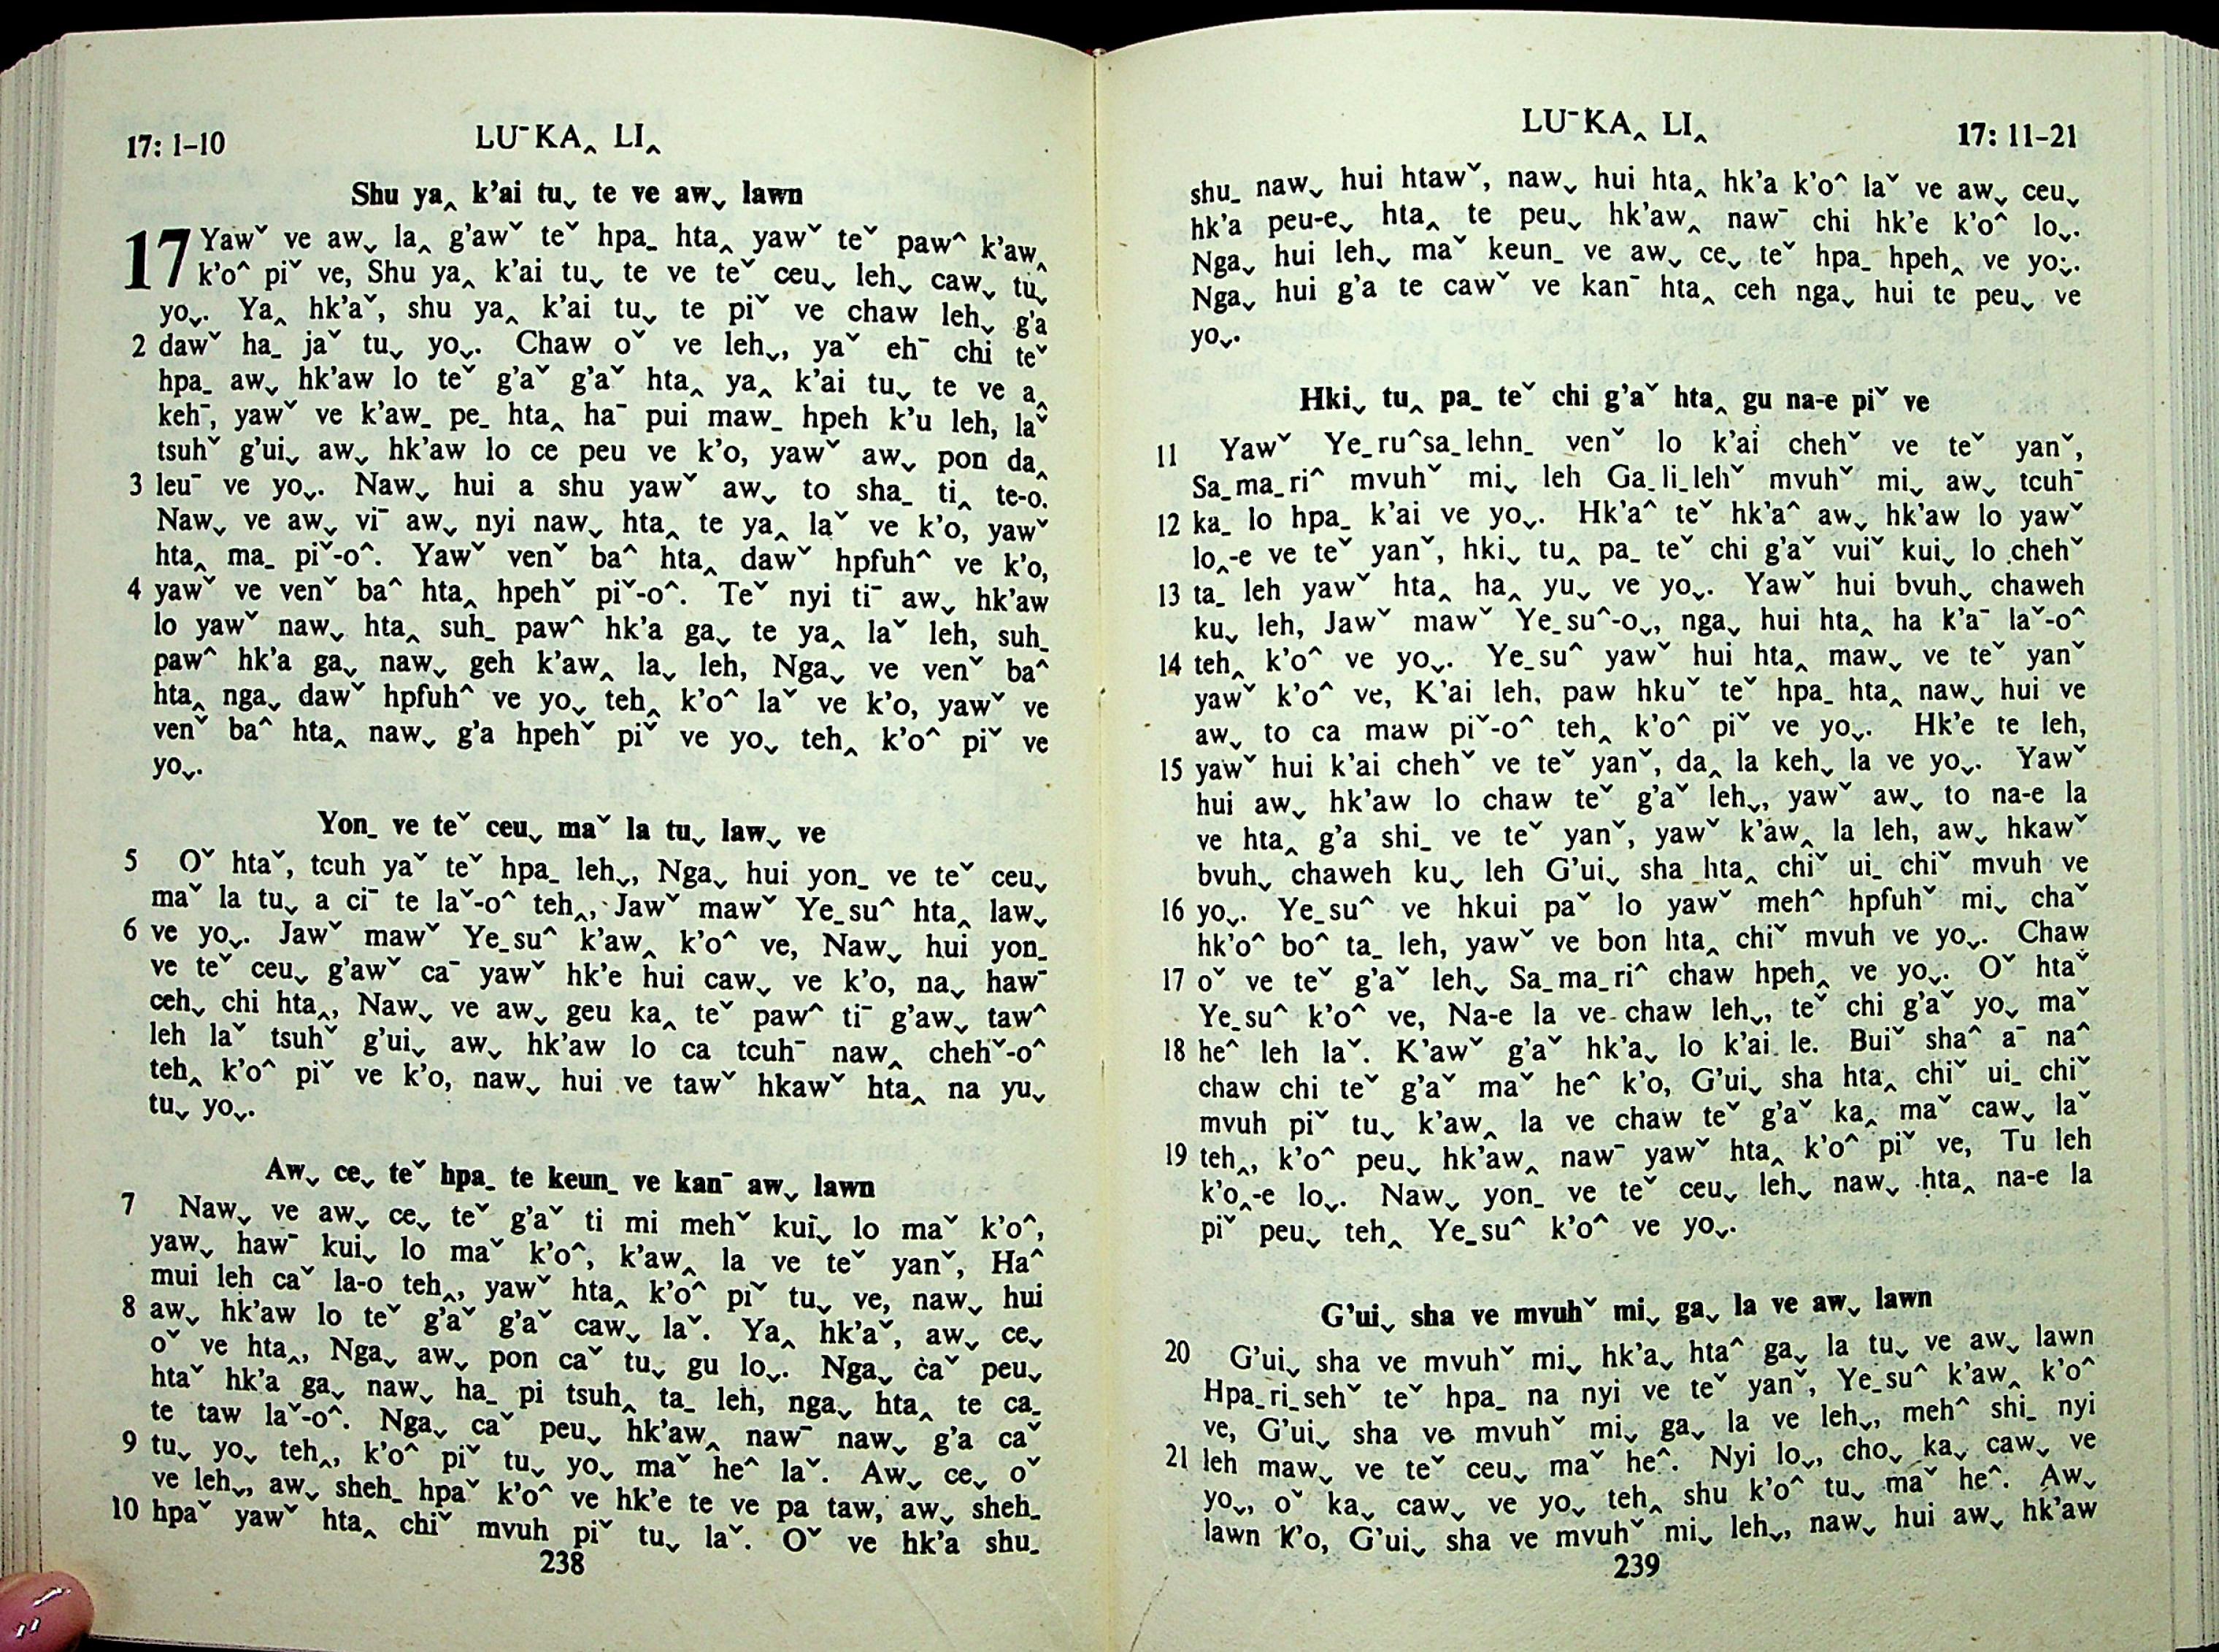 17: 1–10
LUˉKAꞈ LIꞈ
Shu yaꞈ k’ai tuˬ te ve awˬ lawn
17 Yawˇ ve awˬ laꞈ g’awˇ teˇ hpa˗ htaꞈ yawˇ teˇ pawˆ k’awꞈ
k’oˆ piˇ ve, Shu yaꞈ k’ai tuˬ te ve teˇ ceuˬ lehˬ cawˬ tuˬ
yoˬ. Yaꞈ hk’aˇ, shu yaꞈ k’ai tuˬ te piˇ ve chaw lehˬ g’a
2 dawˇ ha˗ jaˇ tuˬ yoˬ. Chaw oˇ ve lehˬ, yaˇ ehˉ chi teˇ
hpa˗ awˬ hk’aw lo teˇ g’aˇ g’aˇ htaꞈ yaꞈ k’ai tuˬ te ve aꞈ
kehˉ, yawˇ ve k’aw˗ pe˗ htaꞈ haˉ pui maw˗ hpeh k’u leh, laˇ
tsuhˇ g’uiˬ awˬ hk’aw lo ce peu ve k’o, yawˇ awˬ pon daꞈ
3 leuˉ ve yoˬ. Nawˬ hui a shu yawˇ awˬ to sha˗ tiꞈ te-o.
Nawˬ ve awˬ viˉ awˬ nyi nawˬ htaꞈ te yaꞈ laˇ ve k’o, yawˇ
htaꞈ ma˗ piˇ-oˆ. Yawˇ venˇ baˆ htaꞈ dawˇ hpfuhˆ ve k’o,
4 yawˇ ve venˇ baˆ htaꞈ hpehˇ piˇ-oˆ. Teˇ nyi tiˉ awˬ hk’aw
lo yawˇ nawˬ htaꞈ suh˗ pawˆ hk’a gaˬ te yaꞈ laˇ leh, suh˗
pawˆ hk’a gaˬ nawˬ geh k’awꞈ laˬ leh, Ngaˬ ve venˇ baˆ
htaꞈ ngaˬ dawˇ hpfuhˆ ve yoˬ tehꞈ k’oˆ laˇ ve k’o, yawˇ ve
venˇ baˆ htaꞈ nawˬ g’a hpehˇ piˇ ve yoˬ tehꞈ k’oˆ piˇ ve
yoˬ.
Yon˗ ve teˇ ceuˬ maˇ la tuˬ lawˬ ve
5 Oˇ htaˇ, tcuh yaˇ teˇ hpa˗ lehˬ, Ngaˬ hui yon˗ ve teˇ ceuˬ
maˇ la tuˬ a ciˉ te laˇ-oˆ tehꞈ, Jawˇ mawˇ Ye˗suˆ htaꞈ lawˬ
6 ve yoˬ. Jawˇ mawˇ Ye˗suˆ k’awꞈ k’oˆ ve, Nawˬ hui yon˗
ve teˇ ceuˬ g’awˇ caˉ yawˇ hk’e hui cawˬ ve k’o, naˬ hawˉ
cehˬ chi htaꞈ, Nawˬ ve awˬ geu kaꞈ teˇ pawˆ tiˉ g’awˬ tawˆ
leh laˇ tsuhˇ g’uiˬ awˬ hk’aw lo ca tcuhˉ nawꞈ chehˇ-oˆ
tehꞈ k’oˆ piˇ ve k’o, nawˬ hui ve tawˇ hkawˇ htaꞈ na yuˬ
tuˬ yoˬ.
Awˬ ceˬ teˇ hpa˗ te keun˗ ve kanˉ awˬ lawn
7 Nawˬ ve awˬ ceˬ teˇ g’aˇ ti mi mehˇ kuiˬ lo maˇ k’oˆ,
yawˬ hawˉ kuiˬ lo maˇ k’oˆ, k’awꞈ la ve teˇ yanˇ, Haˆ
mui leh caˇ la-o tehꞈ, yawˇ htaꞈ k’oˆ piˇ tuˬ ve, nawˬ hui
8 awˬ hk’aw lo teˇ g’aˇ g’aˇ cawˬ laˇ. Yaꞈ hk’aˇ, awˬ ceˬ
oˇ ve htaꞈ, Ngaˬ awˬ pon caˇ tuˬ gu loˬ. Ngaˬ caˇ peuˬ
htaˇ hk’a gaˬ nawˬ ha˗ pi tsuhꞈ ta˗ leh, ngaˬ htaꞈ te ca˗
te taw laˇ-oˆ. Ngaˬ caˇ peuˬ hk’awꞈ nawˉ nawˬ g’a caˇ
9 tuˬ yoˬ tehꞈ, k’oˆ piˇ tuˬ yoˬ maˇ heˆ laˇ. Awˬ ceˬ oˇ
ve lehˬ, awˬ sheh˗ hpaˇ k’oˆ ve hk’e te ve pa taw, awˬ sheh˗
10 hpaˇ yawˇ htaꞈ chiˇ mvuh piˇ tuˬ laˇ. Oˇ ve hk’a shu˗
238
LUˉKAꞈ LIꞈ
17: 11–21
shu˗ nawˬ hui htawˇ, nawˬ hui htaꞈ hk’a k’oˆ laˇ ve awˬ ceuˬ
hk’a peu-eˬ htaꞈ te peuˬ hk’awꞈ nawˉ chi hk’e k’oˆ loˬ.
Ngaˬ hui lehˬ maˇ keun˗ ve awˬ ceˬ teˇ hpa˗ hpehꞈ ve yoˬ.
Ngaˬ hui g’a te cawˇ ve kanˉ htaꞈ ceh ngaˬ hui te peuˬ ve
yoˬ.
Hkiˬ tuꞈ pa˗ teˇ chi g’aˇ htaꞈ gu na-e piˇ ve
11 Yawˇ Ye˗ruˆsa˗lehn˗ venˇ lo k’ai chehˇ ve teˇ yanˇ,
Sa˗ma˗riˆ mvuhˇ miˬ leh Ga˗li˗lehˇ mvuhˇ miˬ awˬ tcuhˉ
12 ka˗ lo hpa˗ k’ai ve yoˬ. Hk’aˆ teˇ hk’aˆ awˬ hk’aw lo yawˇ
loꞈ-e ve teˇ yanˇ, hkiˬ tuꞈ pa˗ teˇ chi g’aˇ vuiˇ kuiˬ lo chehˇ
13 ta˗ leh yawˇ htaꞈ haꞈ yuˬ ve yoˬ. Yawˇ hui bvuhˬ chaweh
kuˬ leh, Jawˇ mawˇ Ye˗suˆ-oˬ, ngaˬ hui htaꞈ ha k’aˉ laˇ-oˆ
14 tehꞈ k’oˆ ve yoˬ. Ye˗suˆ yawˇ hui htaꞈ mawˬ ve teˇ yanˇ
yawˇ k’oˆ ve, K’ai leh, paw hkuˇ teˇ hpa˗ htaꞈ nawˬ hui ve
awˬ to ca maw piˇ-oˆ tehꞈ k’oˆ piˇ ve yoˬ. Hk’e te leh,
15 yawˇ hui k’ai chehˇ ve teˇ yanˇ, daꞈ la kehˬ la ve yoˬ. Yawˇ
hui awˬ hk’aw lo chaw teˇ g’aˇ lehˬ, yawˇ awˬ to na-e la
ve htaꞈ g’a shi˗ ve teˇ yanˇ, yawˇ k’awꞈ la leh, awˬ hkawˇ
bvuhˬ chaweh kuˬ leh G’uiˬ sha htaꞈ chiˇ ui˗ chiˇ mvuh ve
16 yoˬ. Ye˗suˆ ve hkui paˇ lo yawˇ mehˆ hpfuhˇ miˬ chaˇ
hk’oˆ boˆ ta˗ leh, yawˇ ve bon htaꞈ chiˇ mvuh ve yoˬ. Chaw
17 oˇ ve teˇ g’aˇ lehˬ Sa˗ma˗riˆ chaw hpehꞈ ve yoˬ. Oˇ htaˇ
Ye˗suˆ k’oˆ ve, Na-e la ve chaw lehˬ, teˇ chi g’aˇ yoˬ maˇ
18 heˆ leh laˇ. K’awˇ g’aˇ hk’aˬ lo k’ai le. Buiˇ shaˆ aˉ naˆ
chaw chi teˇ g’aˇ maˇ heˆ k’o, G’uiˬ sha htaꞈ chiˇ ui˗ chiˇ
mvuh piˇ tuˬ k’awꞈ la ve chaw teˇ g’aˇ kaꞈ maˇ cawˬ laˇ
19 tehꞈ, k’oˆ peuˬ hk’awꞈ nawˉ yawˇ htaꞈ k’oˆ piˇ ve, Tu leh
k’oꞈ-e loˬ. Nawˬ yon˗ ve teˇ ceuˬ lehˬ nawˬ htaꞈ na-e la
piˇ peuˬ tehꞈ Ye˗suˆ k’oˆ ve yoˬ.
G’uiˬ sha ve mvuhˇ miˬ gaˬ la ve awˬ lawn
20 G’uiˬ sha ve mvuhˇ miˬ hk’aˬ htaˆ gaˬ la tuˬ ve awˬ lawn
Hpa˗ri˗sehˇ teˇ hpa˗ na nyi ve teˇ yanˇ, Ye˗suˆ k’awꞈ k’oˆ
ve, G’uiˬ sha ve mvuhˇ miˬ gaˬ la ve lehˬ, mehˆ shi˗ nyi
21 leh mawˬ ve teˇ ceuˬ maˇ heˆ. Nyi loˬ, choˬ kaˬ cawˬ ve
yoˬ, oˇ kaˬ cawˬ ve yoˬ tehꞈ shu k’oˆ tuˬ maˇ heˆ. Awˬ
lawn k’o, G’uiˬ sha ve mvuhˇ miˬ lehˬ, nawˬ hui awˬ hk’aw
239